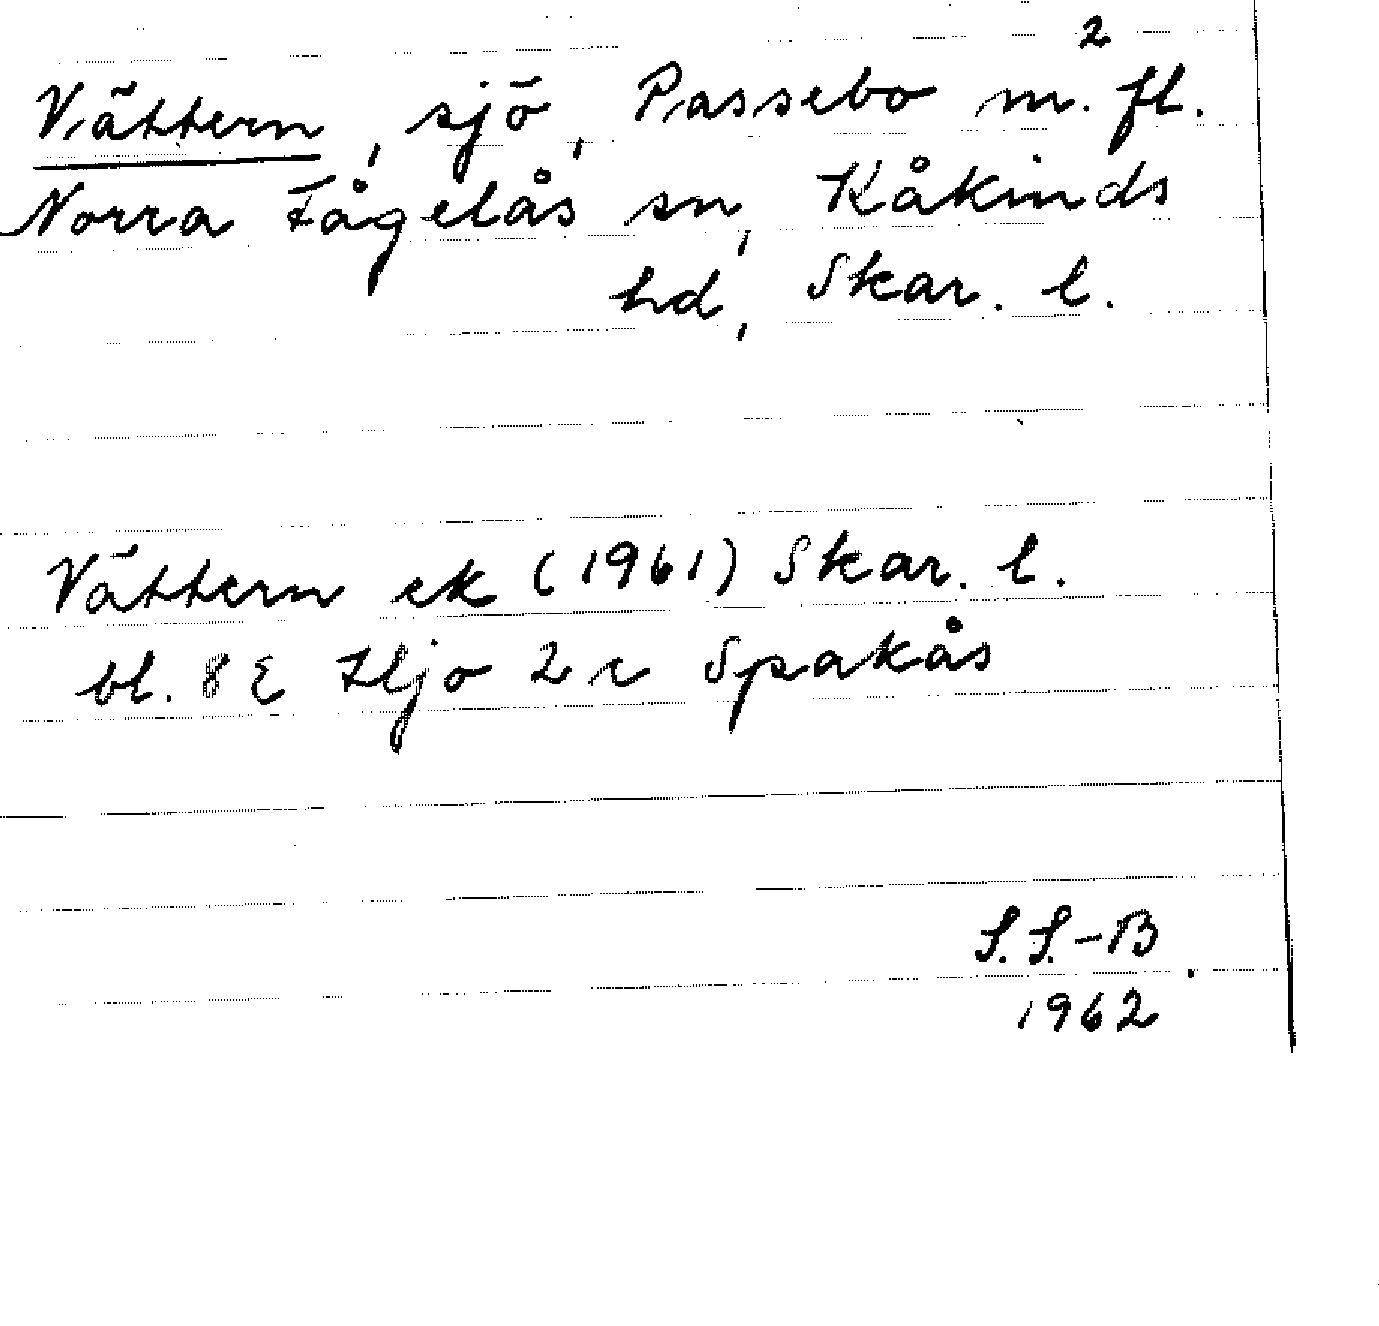 2
Vättern, sjö, Passebo m. fl.
Norra Fågelås sn, Kåkinds
hd, Skar. l.
Vättern ek (1961) Skar. l.
bl. 8 E Hjo 2 c Spakås
S. S.-B.
1962